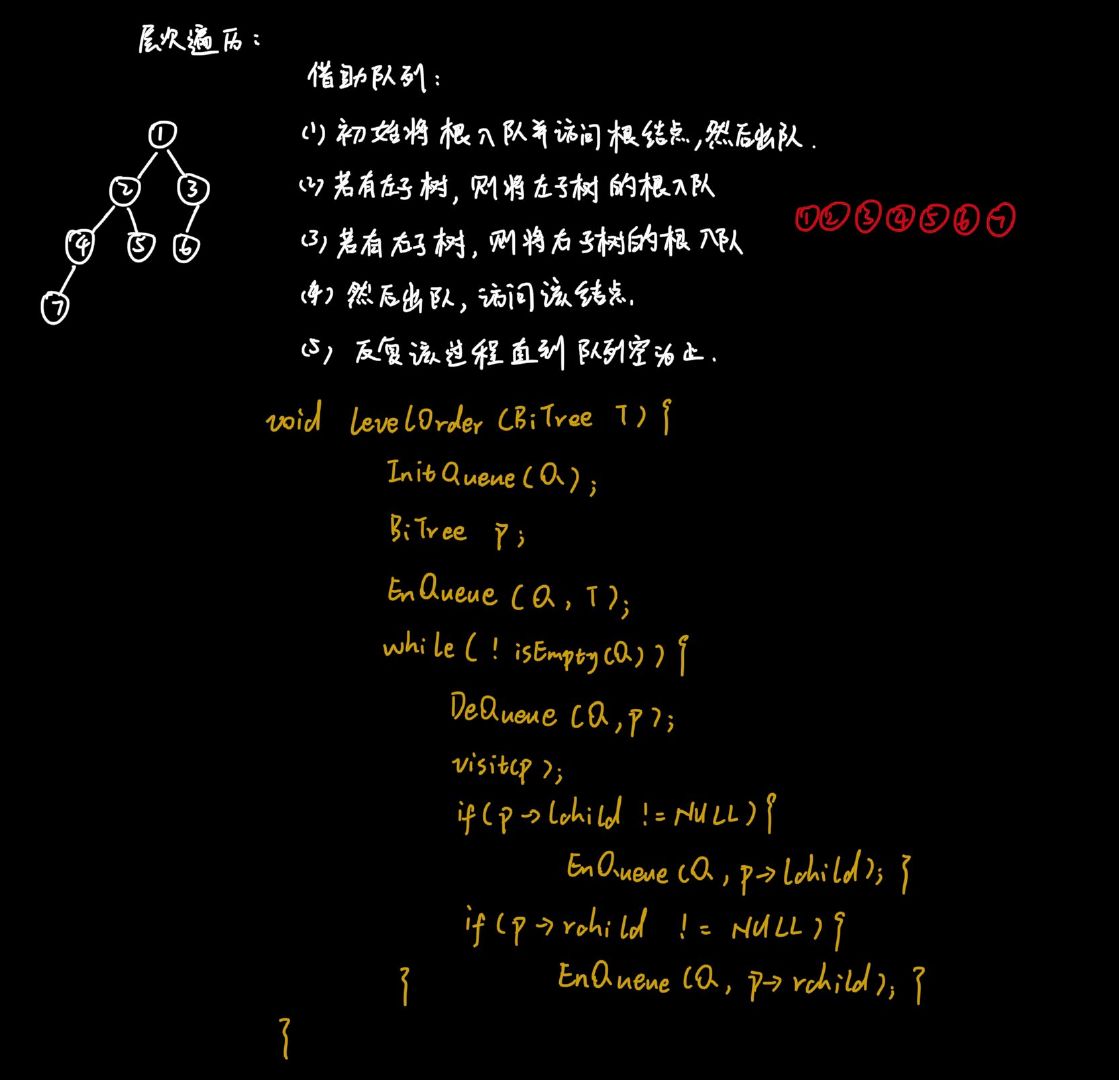 层次遍历:
借助队列:
(1) 初始将根入队并访问根结点,然后出队.
(2) 若有左子树, 则将左子树的根入队
(3) 若有右子树, 则将右子树的根入队
(4) 然后出队, 访问该结点.
(5) 反复该过程直到队列空为止.
①
② ③
④ ⑤ ⑥
⑦
① ② ③ ④ ⑤ ⑥ ⑦
void LevelOrder (BiTree T) {
InitQueue(Q);
BiTree p;
EnQueue (Q, T);
while( ! isEmpty(Q)) {
DeQueue (Q, p);
visit(p);
if(p->lchild != NULL) {
EnQueue (Q, p->lchild); }
if(p->rchild != NULL) {
EnQueue (Q, p->rchild); }
}
}